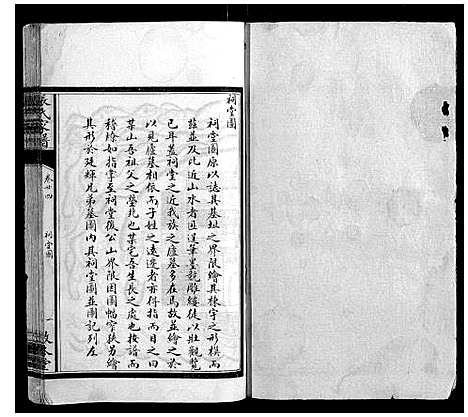 祠堂圖
祠堂圖原以誌其基址之界限繪其棟宇之形模而
茲並及比近山水者匪逞筆墨競雕縷徒以壯觀覽
已耳蓋祠堂之近我族之廬墓多在焉故並繪之於
以見廬墓相依而子姓之遠邊者亦得指而目之曰
某山吾祖父之塋兆也某宅吾生長之處也按譜而
稽瞭如指掌至祠堂後公山界限因圖幅窄狹另繪
其形於廷輝兄弟墓圖內其祠堂圖並圖記列左
氏家譜
卷廿四
祠堂圖
一